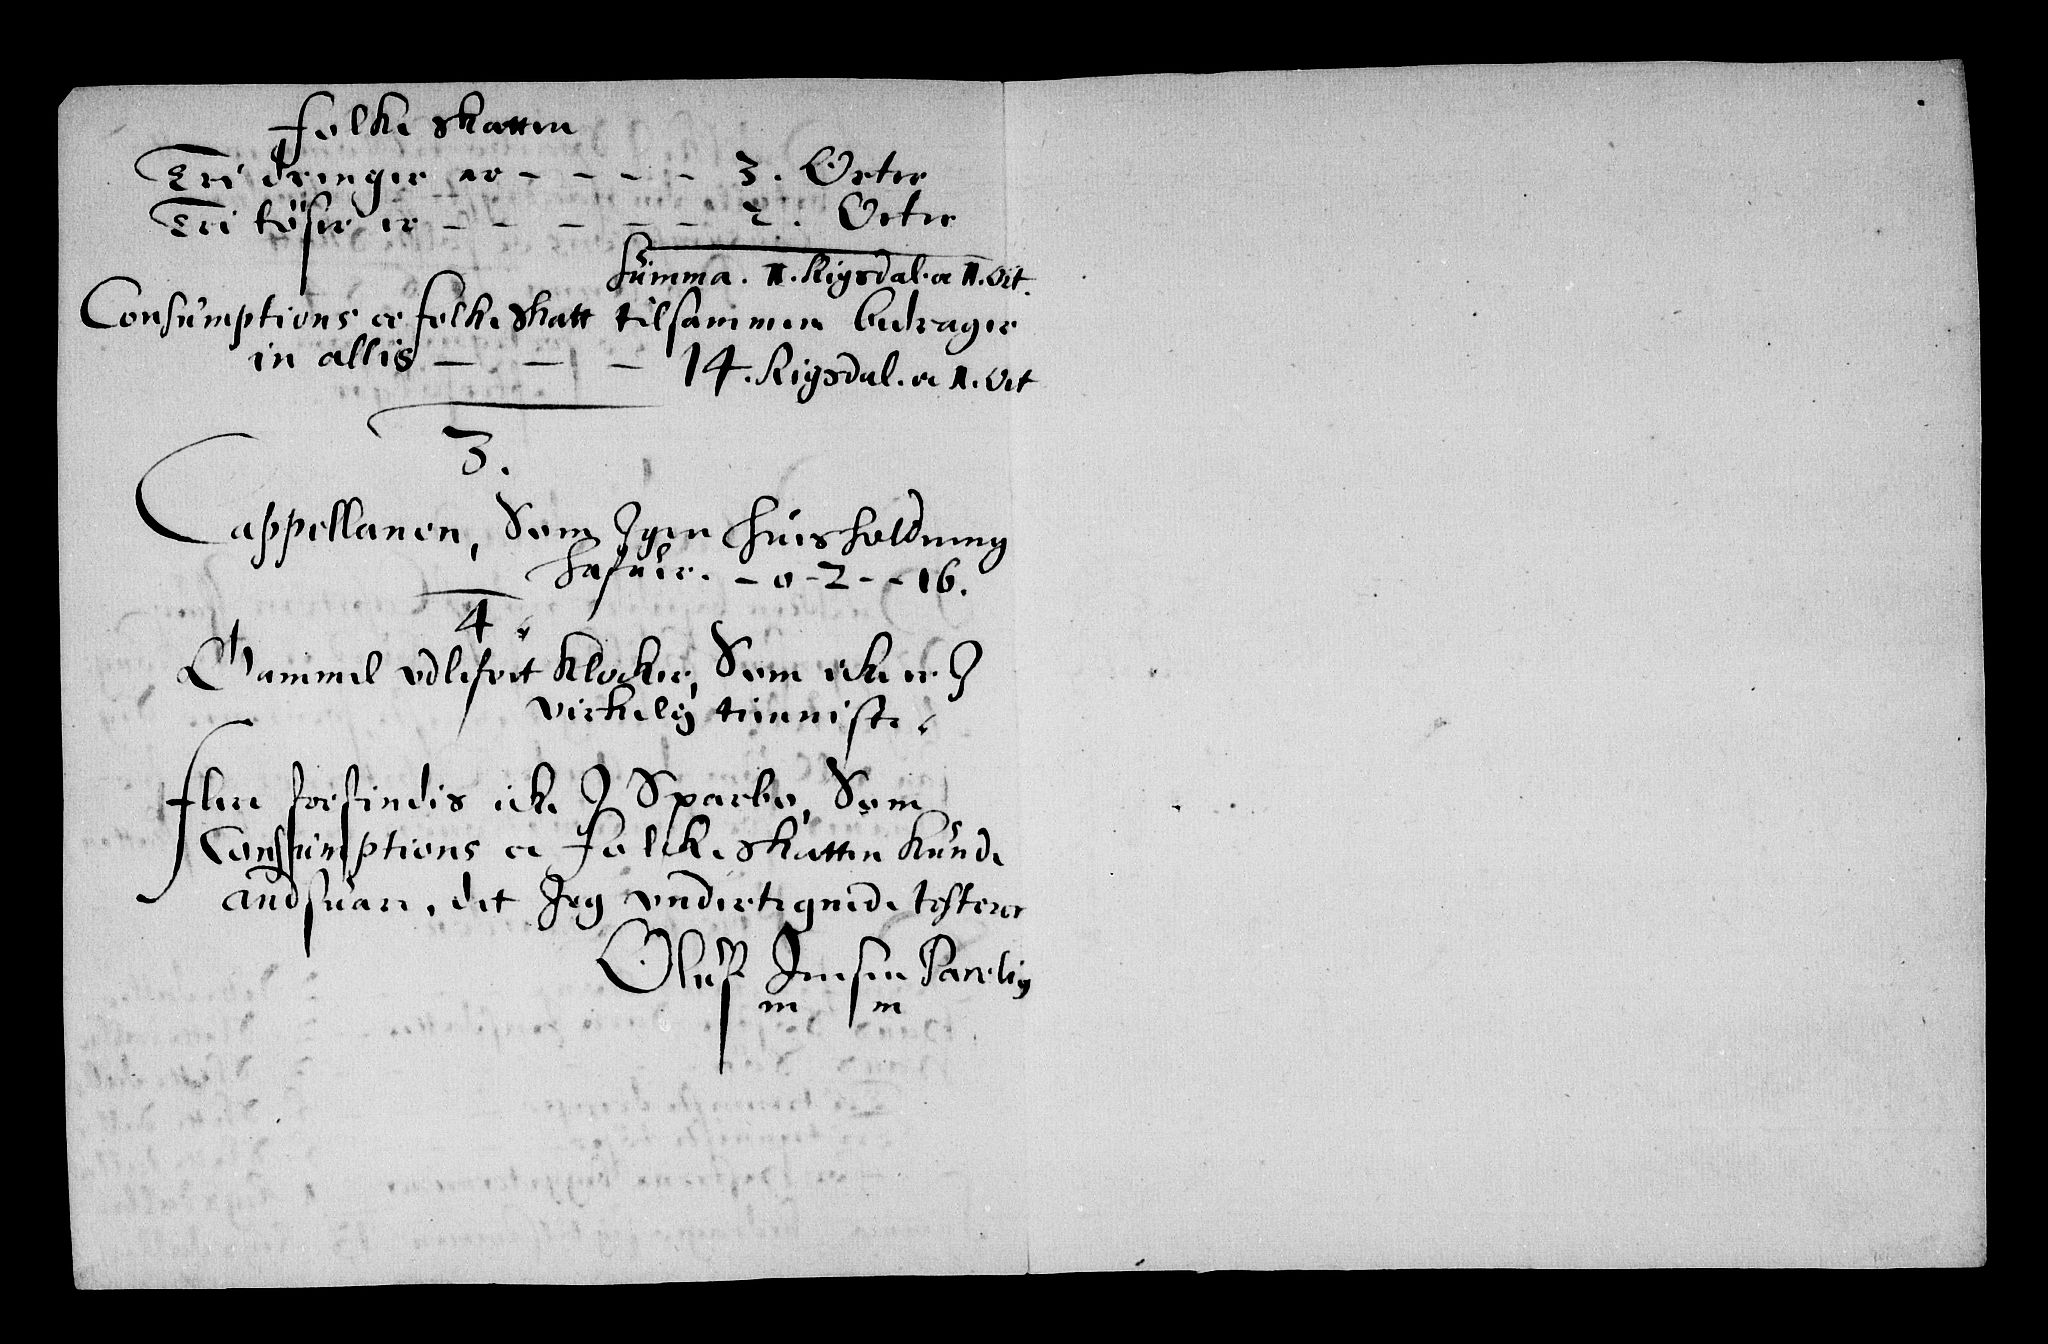 folke skatten
Tri drenger er - - - - 3. Orter
Tri töser er - - - - - 2. Orter
Summa. 1. Rigsdal. oc 1. Ort.
Consumptions oc folke skatt tilsammen bedrager
in allis - - - 14. Rigsdal. oc 1. Ort
3.
Cappellanen, Som Igen huusholdning
hafuer. - 0 - 2 - - 16.
4.
Gammel udlefvet Klocker, Som icke er I
virkelig tienniste.
flere forfindis icke I Sparbo, Som
Consumptions oc folcke skatten kunde
andsuare, det Jeg undertegnede testerer
Oluff Jensen Parelig
m m